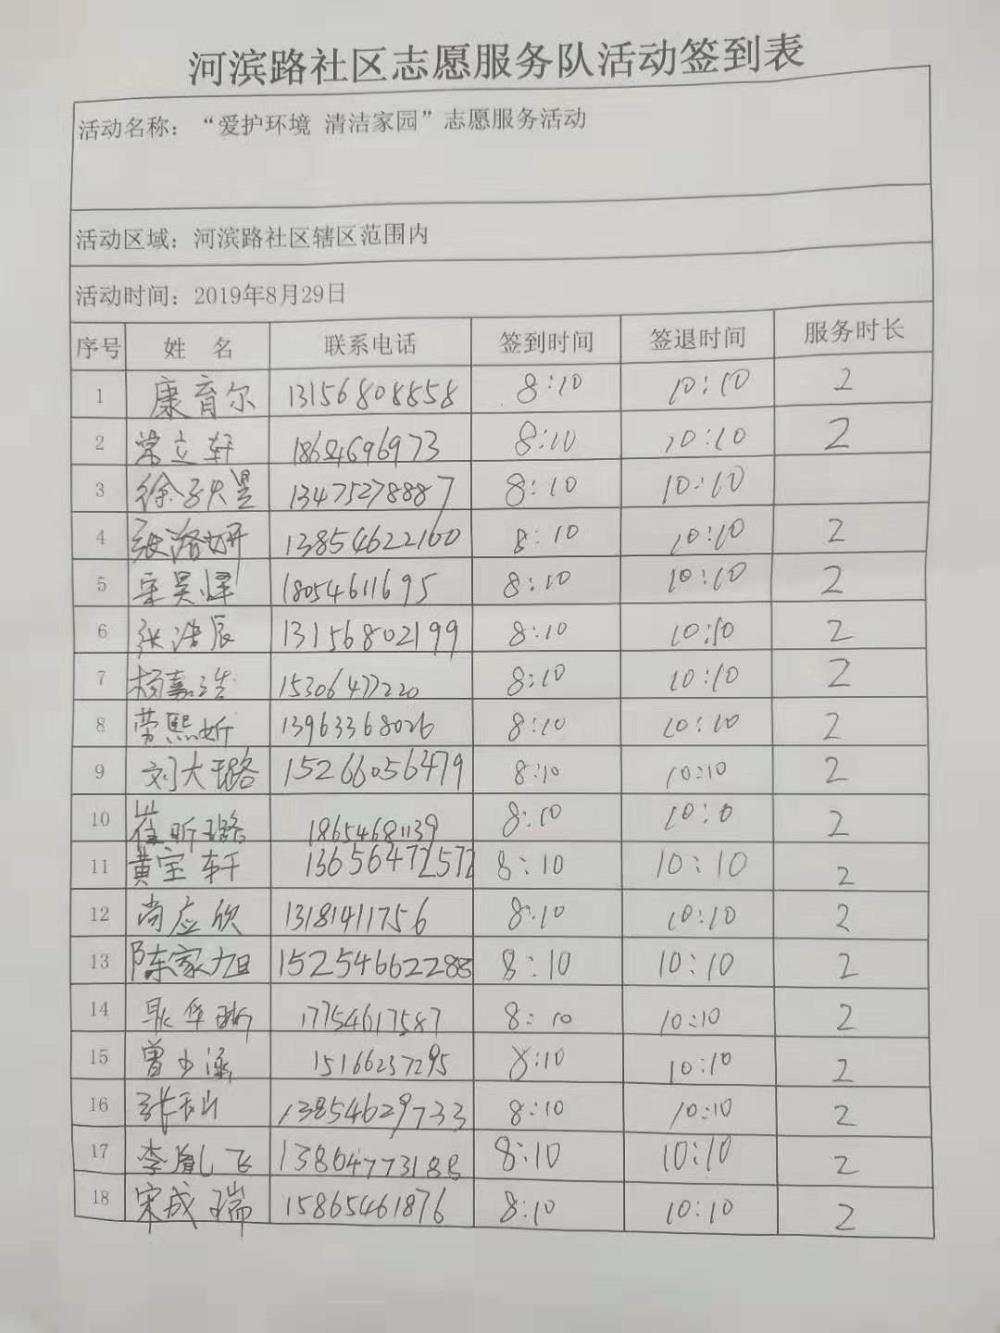 河滨路社区志愿服务队活动签到表
活动名称：“爱护环境 清洁家园”志愿服务活动
活动区域：河滨路社区辖区范围内
活动时间：2019年8月29日
序号 姓 名 联系电话 签到时间 签退时间 服务时长
1 康育尔 13156808858 8:10 10:10 2
2 常立轩 18654696973 8:10 10:10 2
3 13475278887 8:10 10:10
4 张洛妍 13854622160 8:10 10:10 2
5 18054611695 8:10 10:10 2
6 张浩辰 13156802199 8:10 10:10 2
7 杨嘉浩 15306477220 8:10 10:10 2
8 劳熙妡 13963368026 8:10 10:10 2
9 刘大璐 15266056479 8:10 10:10 2
10 崔昕璐 18654681139 8:10 10:0 2
11 黄宝轩 13656472572 8:10 10:10 2
12 尚应欣 13181411756 8:10 10:10 2
13 陈家旭 15254662288 8:10 10:10 2
14 17754617587 8:10 10:10 2
15 曾少涵 15166237295 8:10 10:10 2
16 13854629733 8:10 10:10 2
17 李胤飞 13864773188 8:10 10:10 2
18 宋成瑞 15865461876 8:10 10:10 2